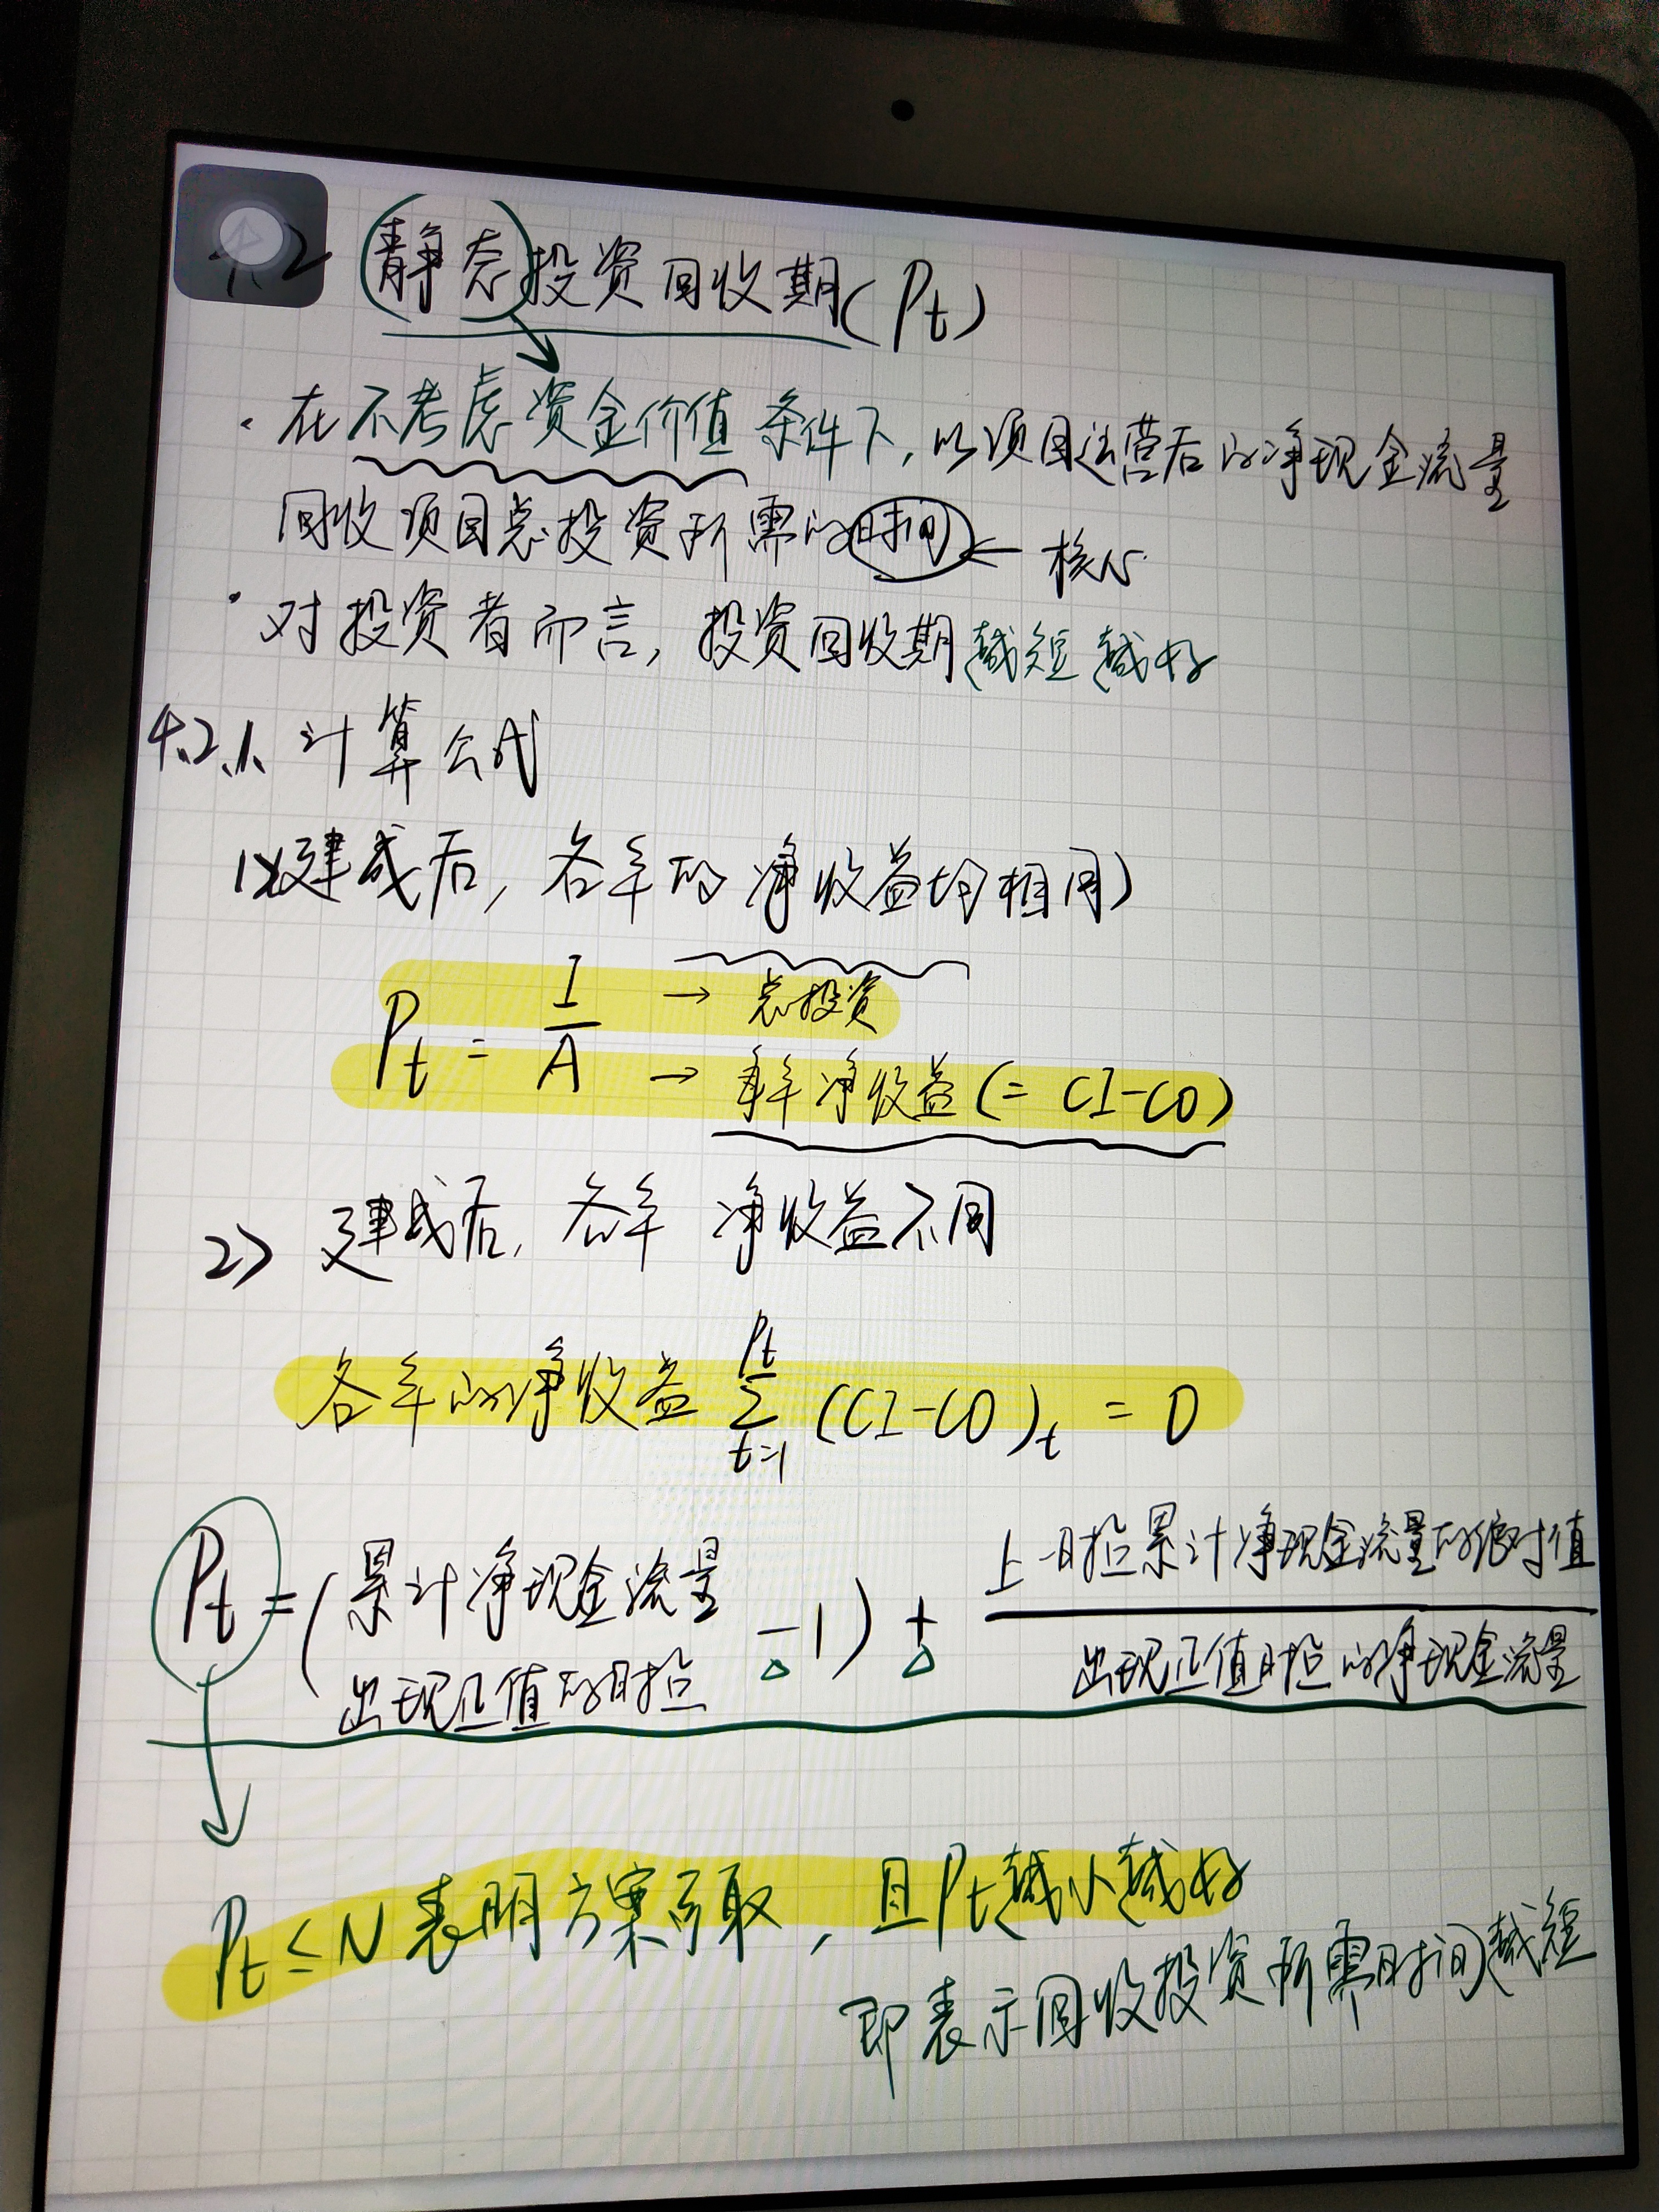 4.2 静态投资回收期(Pt)
· 在不考虑资金价值条件下, 以项目运营后的净现金流量
回收项目总投资所需的时间 ← 核心
· 对投资者而言, 投资回收期越短越好
4.2.1. 计算公式
1) 建成后, 各年的净收益均相同)
Pt = I/A → 总投资
→ 每年净收益(= CI-CO)
2) 建成后, 各年净收益不同
各年的净收益 Pt∑t=1 (CI-CO)t = 0
Pt = (累计净现金流量出现正值的时点 -1) + 上一时点累计净现金流量的绝对值/出现正值时点的净现金流量
Pt ≤ N 表明方案可取, 且Pt越小越好
即表示回收投资所需时间越短